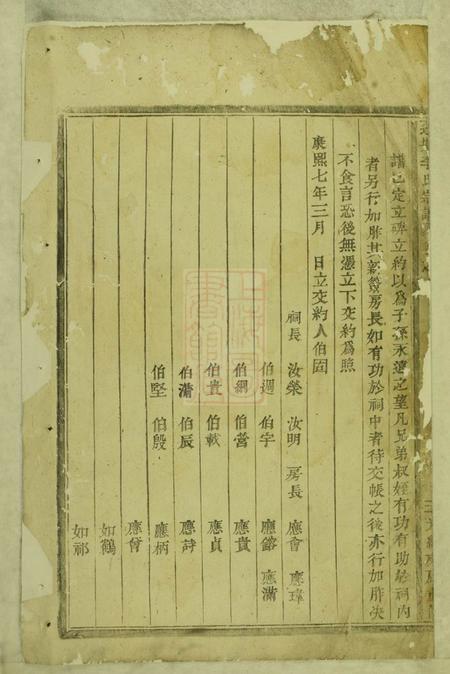 李氏宗譜
譜已定立碑立約以爲子孫永遠之望凡兄弟叔姪有功有助於祠內
者另行加胙其新發房長如有功於祠中者待交帳之後亦行加胙决
不食言恐後無憑立下交約爲照
康熙七年三月 日立交約人伯固
祠長 汝榮 汝明 房長 應會 應瑋
伯週 伯宇 應鎔 應滿
伯綱 伯營 應貴
伯貴 伯載 應貞
伯滿 伯辰 應詩
伯堅 伯殷 應柄
應曾
如鶴
如祁